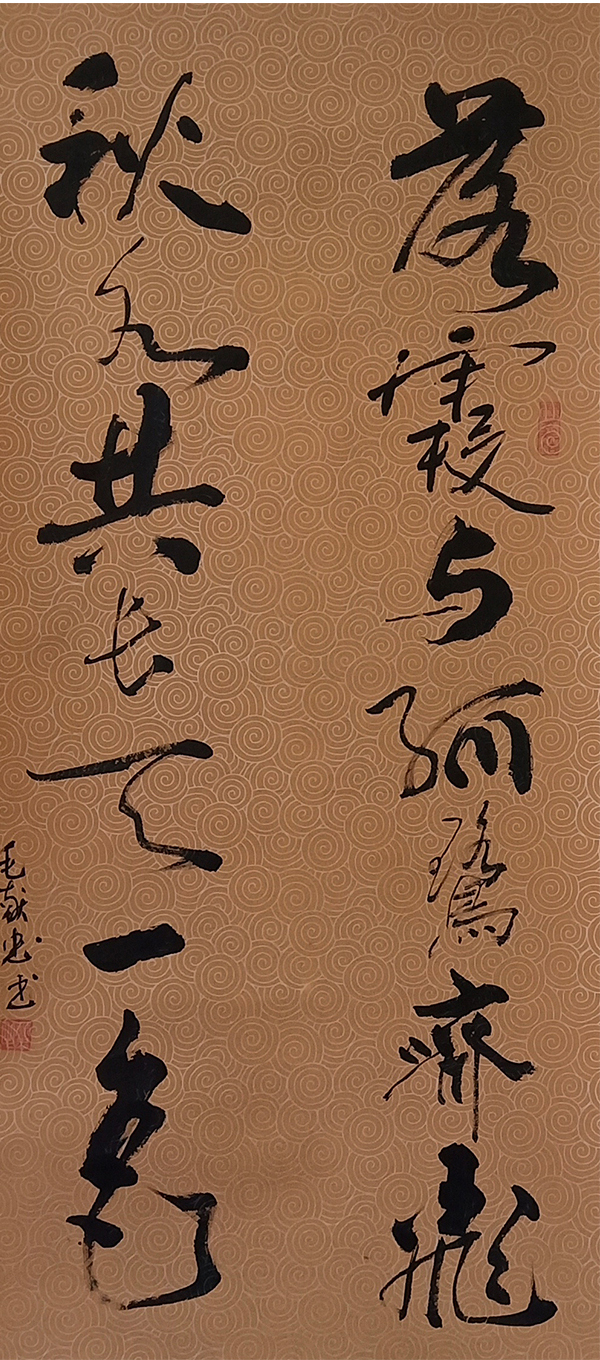 落霞与孤鹭齐飞
秋水共长天一色
毛献忠书